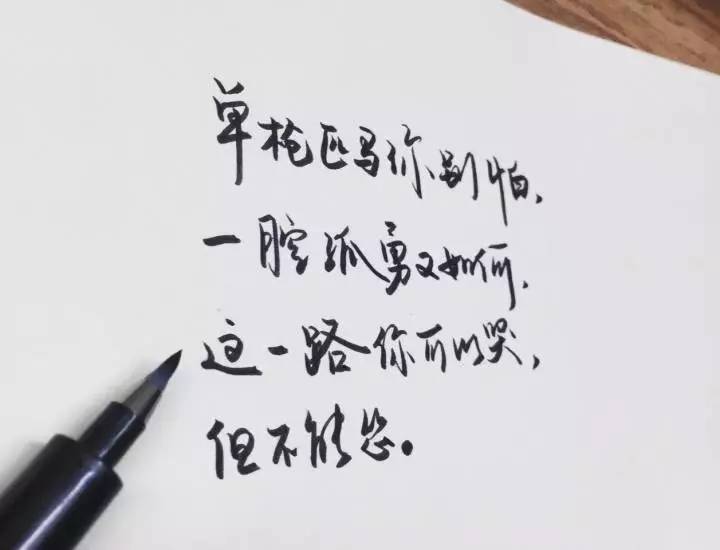 单枪匹马你别怕,
一腔孤勇又如何,
这一路你可以哭,
但不能怂。